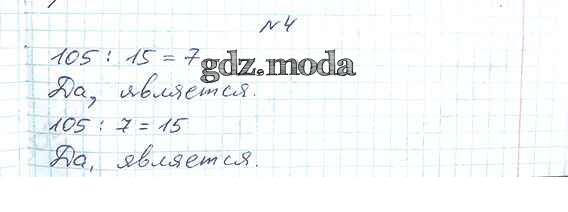 №4
105 : 15 = 7
gdz.moda
Да, является.
105 : 7 = 15
Да, является.